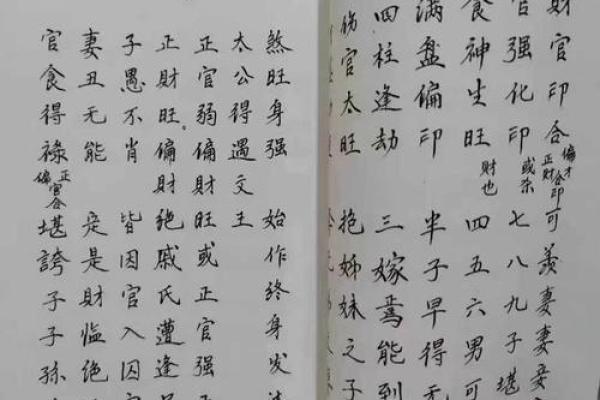 财官印合 偏才 正财 合印 可羨妻妻妾
官强化印 或杀 七八九子堪
食神生旺 财也 四五六男可
满盘偏印 半子早得
四柱逢劫 三嫁焉能到
伤官太旺 抱姊妹之子
煞旺身强 始作终身发
太公得遇文王
正官弱偏財旺或正官强
正財旺。偏財绝戚氏遭逢
子愚不肖 皆因官入囚官
妻丑无能 定是財临绝
官食得祿 正官合 偏 堪誇子子孙